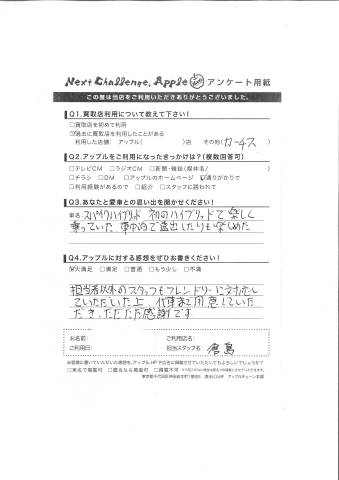 Next Challenge, Apple アンケート用紙
この度は当店をご利用いただきありがとうございました。
Q1.買取店利用について教えて下さい!
□買取店を初めて利用
☑過去に買取店を利用したことがある
利用した店舗: アップル( )店 その他(カーチス)
Q2.アップルをご利用になったきっかけは?(複数回答可)
□テレビCM □ラジオCM □新聞・雑誌(媒体名/ )
□チラシ □DM □アップルのホームページ ☑通りがかりで
□利用経験があるので □紹介 □スタッフに誘われて
Q3.あなたと愛車との思い出を聞かせください!
車名:スパイクハイブリッド 初のハイブリッドで楽しく
乗っていた 車中泊で遠出したりも楽しめた
Q4.アップルに対する感想をぜひお書きください!
☑大満足 □満足 □普通 □もう少し □不満
担当者以外のスタッフもフレンドリーに対応し
ていただいた上、代車まで用意していた
だき、ただただ感謝です
お名前: ご利用店名:
ご利用日: 担当スタッフ名: 倉島
お客様に書いていただいた感想を、アップルHPや店舗に掲載させていただいてもよろしいでしょうか?
□実名で掲載可 □匿名なら掲載可 □掲載不可